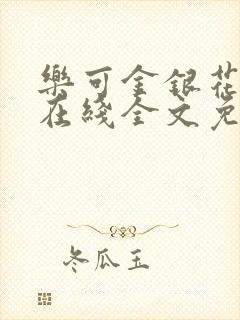 樂可金銀花
在綫全文免
冬瓜玉